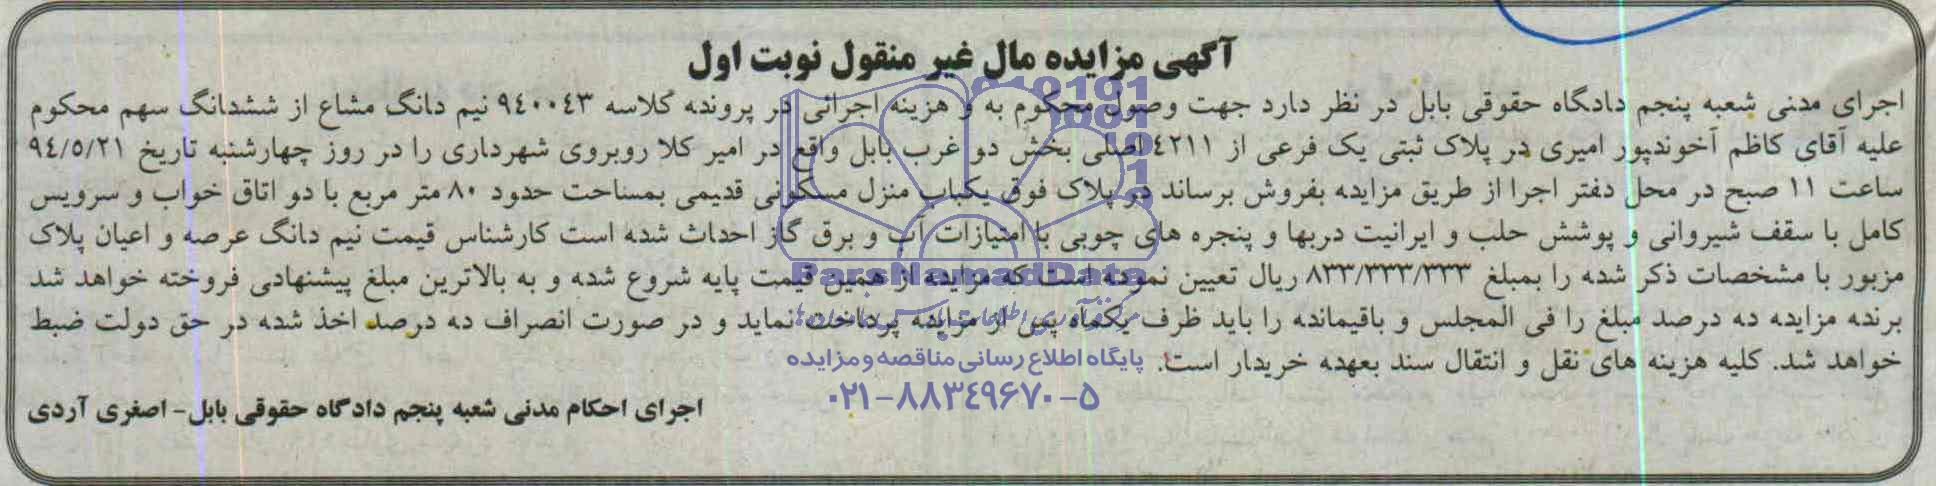 آگهی مزایده مال غیر منقول نوبت اول
اجرای مدنی شعبه پنجم دادگاه حقوقی بابل در نظر دارد جهت وصول محکوم به و هزینه اجرائی در پرونده کلاسه ۹٤۰۰٤۳ نیم دانگ مشاع از ششدانگ سهم محکوم
علیه آقای کاظم آخوندپور امیری در پلاک ثبتی یک فرعی از ٤۲۱۱ اصلی بخش دو غرب بابل واقع در امیر کلا روبروی شهرداری را در روز چهارشنبه تاریخ ۹٤/۵/۲۱
ساعت ۱۱ صبح در محل دفتر اجرا از طریق مزایده بفروش برساند در پلاک فوق یکباب منزل مسکونی قدیمی بمساحت حدود ۸۰ متر مربع با دو اتاق خواب و سرویس
کامل با سقف شیروانی و پوشش حلب و ایرانیت دربها و پنجره های چوبی با امتیازات آب و برق گاز احداث شده است کارشناس قیمت نیم دانگ عرصه و اعیان پلاک
مزبور با مشخصات ذکر شده را بمبلغ ۸۳۳/۳۳۳/۳۳۳ ریال تعیین نموده است که مزایده از همین قیمت پایه شروع شده و به بالاترین مبلغ پیشنهادی فروخته خواهد شد
برنده مزایده ده درصد مبلغ را فی المجلس و باقیمانده را باید ظرف یکماه پس از مزایده پرداخت نماید و در صورت انصراف ده درصد اخذ شده در حق دولت ضبط
خواهد شد. کلیه هزینه های نقل و انتقال سند بعهده خریدار است.
اجرای احکام مدنی شعبه پنجم دادگاه حقوقی بابل- اصغری آردی
ParsNamadData
پایگاه اطلاع رسانی مناقصه و مزایده
۰۲۱-۸۸۳٤۹۶۷۰-۵